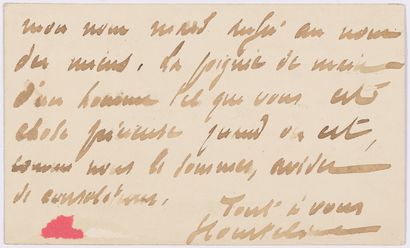 mon nom mais aussi au nom
des miens. La poignée de main
d'un homme tel que vous est
chose précieuse quand on est,
comme nous le sommes, avides
de consolations.
Tout à vous